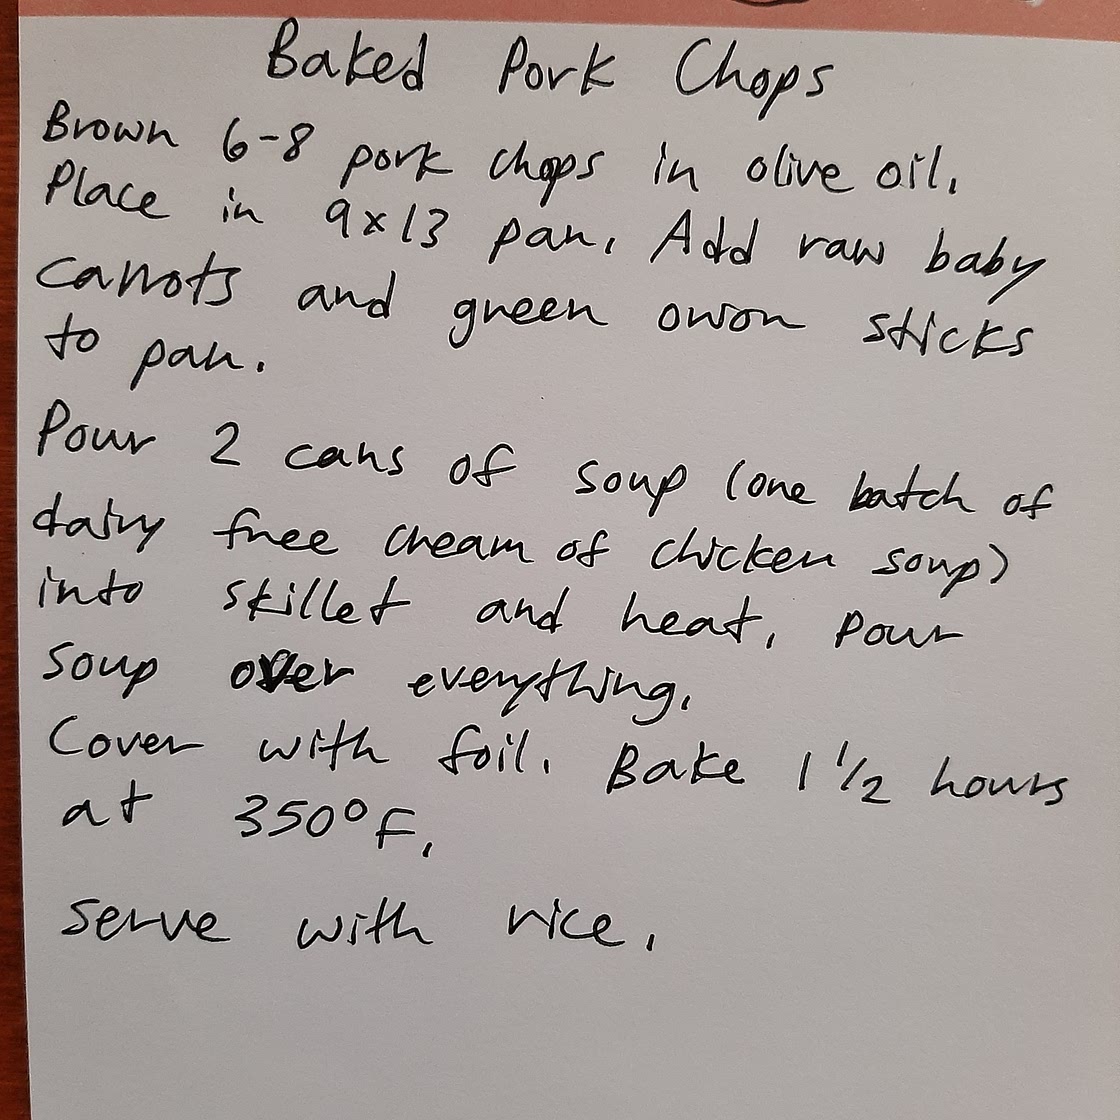 Baked Pork Chops
Brown 6-8 pork chops in olive oil.
Place in 9x13 pan. Add raw baby
carrots and green onion sticks
to pan.
Pour 2 cans of soup (one batch of
dairy free cream of chicken soup)
into skillet and heat. Pour
soup over everything.
Cover with foil. Bake 1 1/2 hours
at 350°F.
Serve with rice.